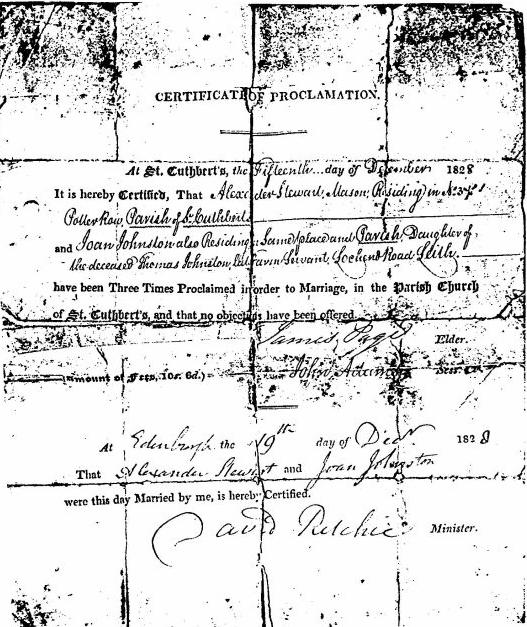 CERTIFICATE OF PROCLAMATION.
At St. Cuthbert's, the Fifteenth day of December 1828
It is hereby Certified, That Alexander Stewart, Mason, Residing in No. 37
Potter Row, Parish of St. Cuthberts
and Joan Johnston also Residing Same place and Parish, Daughter of
the deceased Thomas Johnston, Servant, Lochend Road Leith.
have been Three Times Proclaimed in order to Marriage, in the Parish Church
of St. Cuthbert's, and that no objections have been offered.
James Elder.
(Amount of Fees, 10s. 6d.) John
At Edinburgh the 19th day of Decr 1828
That Alexander Stewart and Joan Johnston
were this day Married by me, is hereby Certified.
David Ritchie Minister.